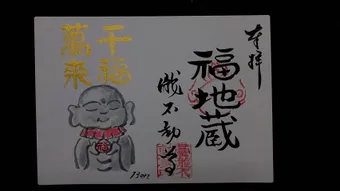 奉拝
福地蔵
我不動尊
千福
萬来